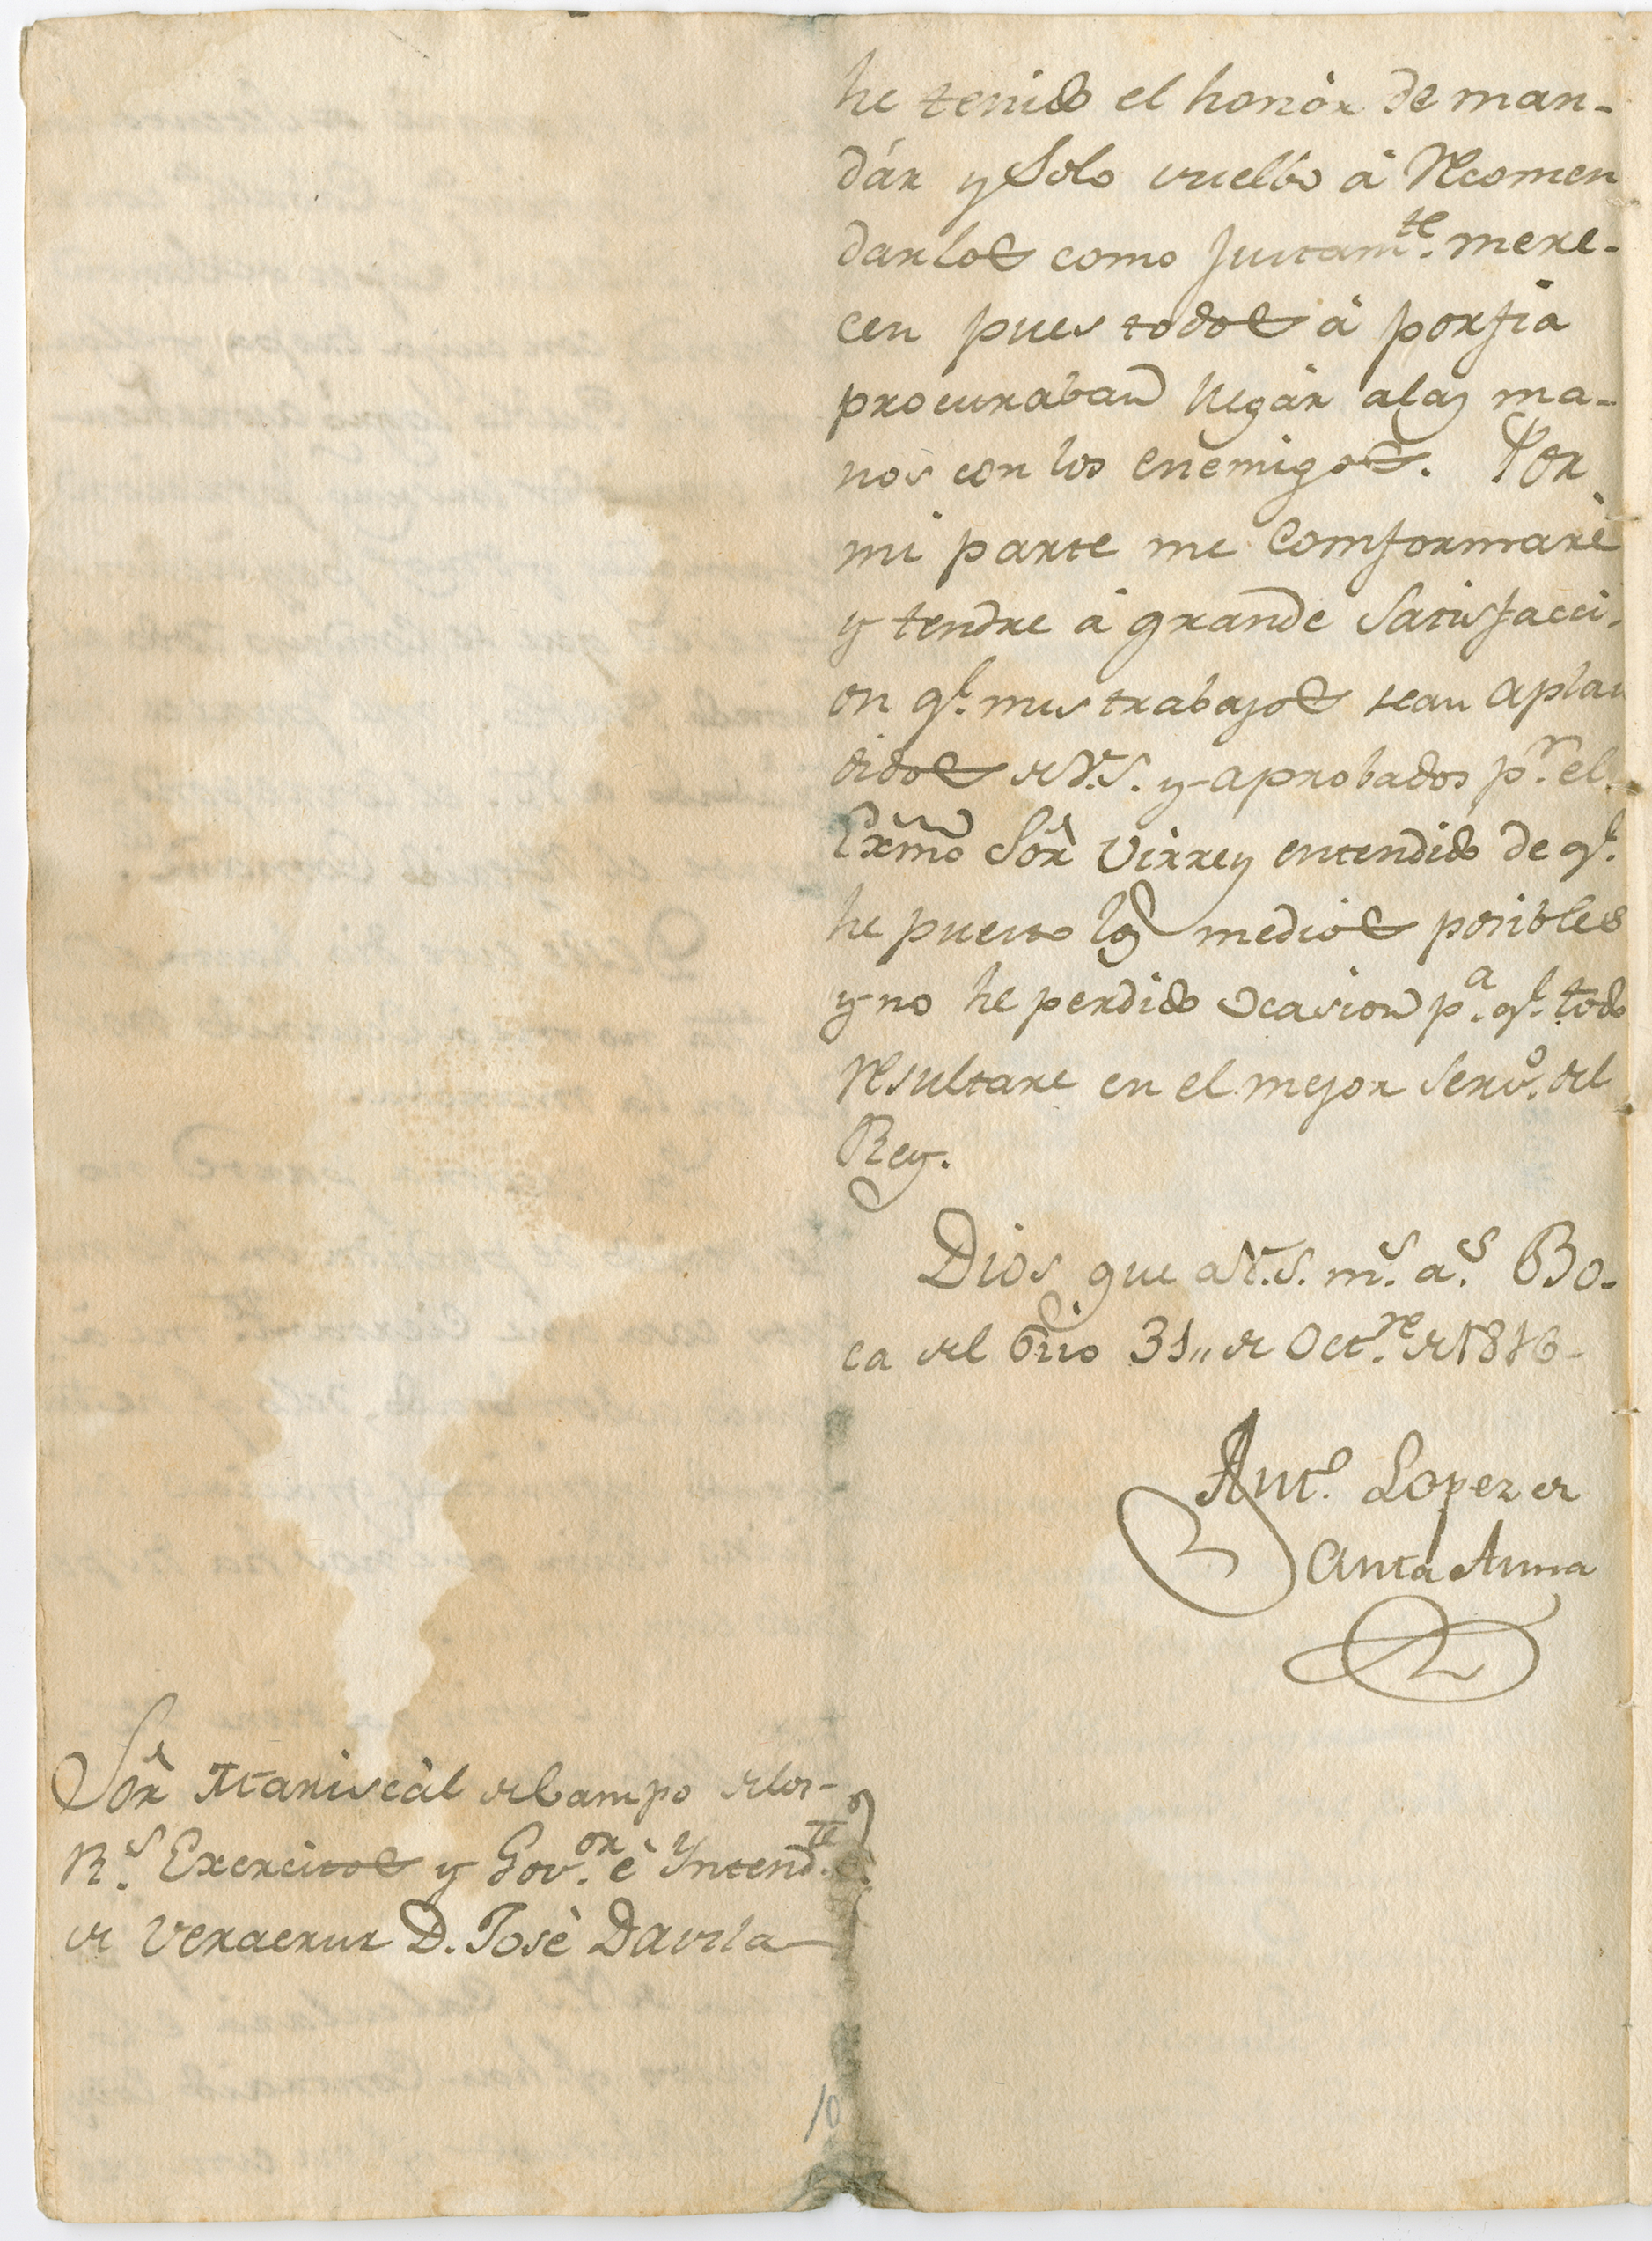 he tenido el honòr de man-
dár y Solo vuelbo à Recomen
darlos como Justamte. mere-
cen pues todos à porfia
procuraban llegàr alas ma-
nos con los enemigos. Por
mi parte me Comformarè
y tendre à grande Satisfacci-
on qe. mis trabajos sean aplau
didos de V.S. y aprobados pr. el
Exmo Sòr Virrey entendido de qe.
he puesto los medios posibles
y no he perdido Ocasion pa. qe. todo
Resultare en el mejor Servo. del
Rey.
Dios gue a V.S. ms. as. Bo-
ca del Rio 31,, de Octre. de 1816-
Anto. Lopez de
Santa Anna
Sòr Mariscàl de Campo de los-
Rs. Exercitos y Govor. è Yntendte.
de Veracruz D. Josè Davila
10